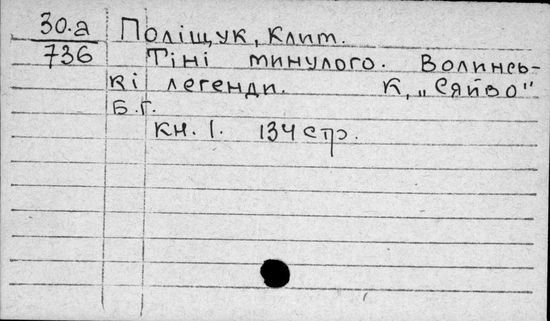 30.а Поліщук, Клит.
736 Тіні минулого. Волинсь-
кі легенди. К, „Сяйво"
Б.Г.
кн. 1. 134 стр.